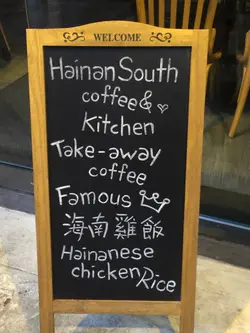 WELCOME
Hainan South
coffee &
Kitchen
Take-away
coffee
Famous
海南雞飯
Hainanese
chicken Rice